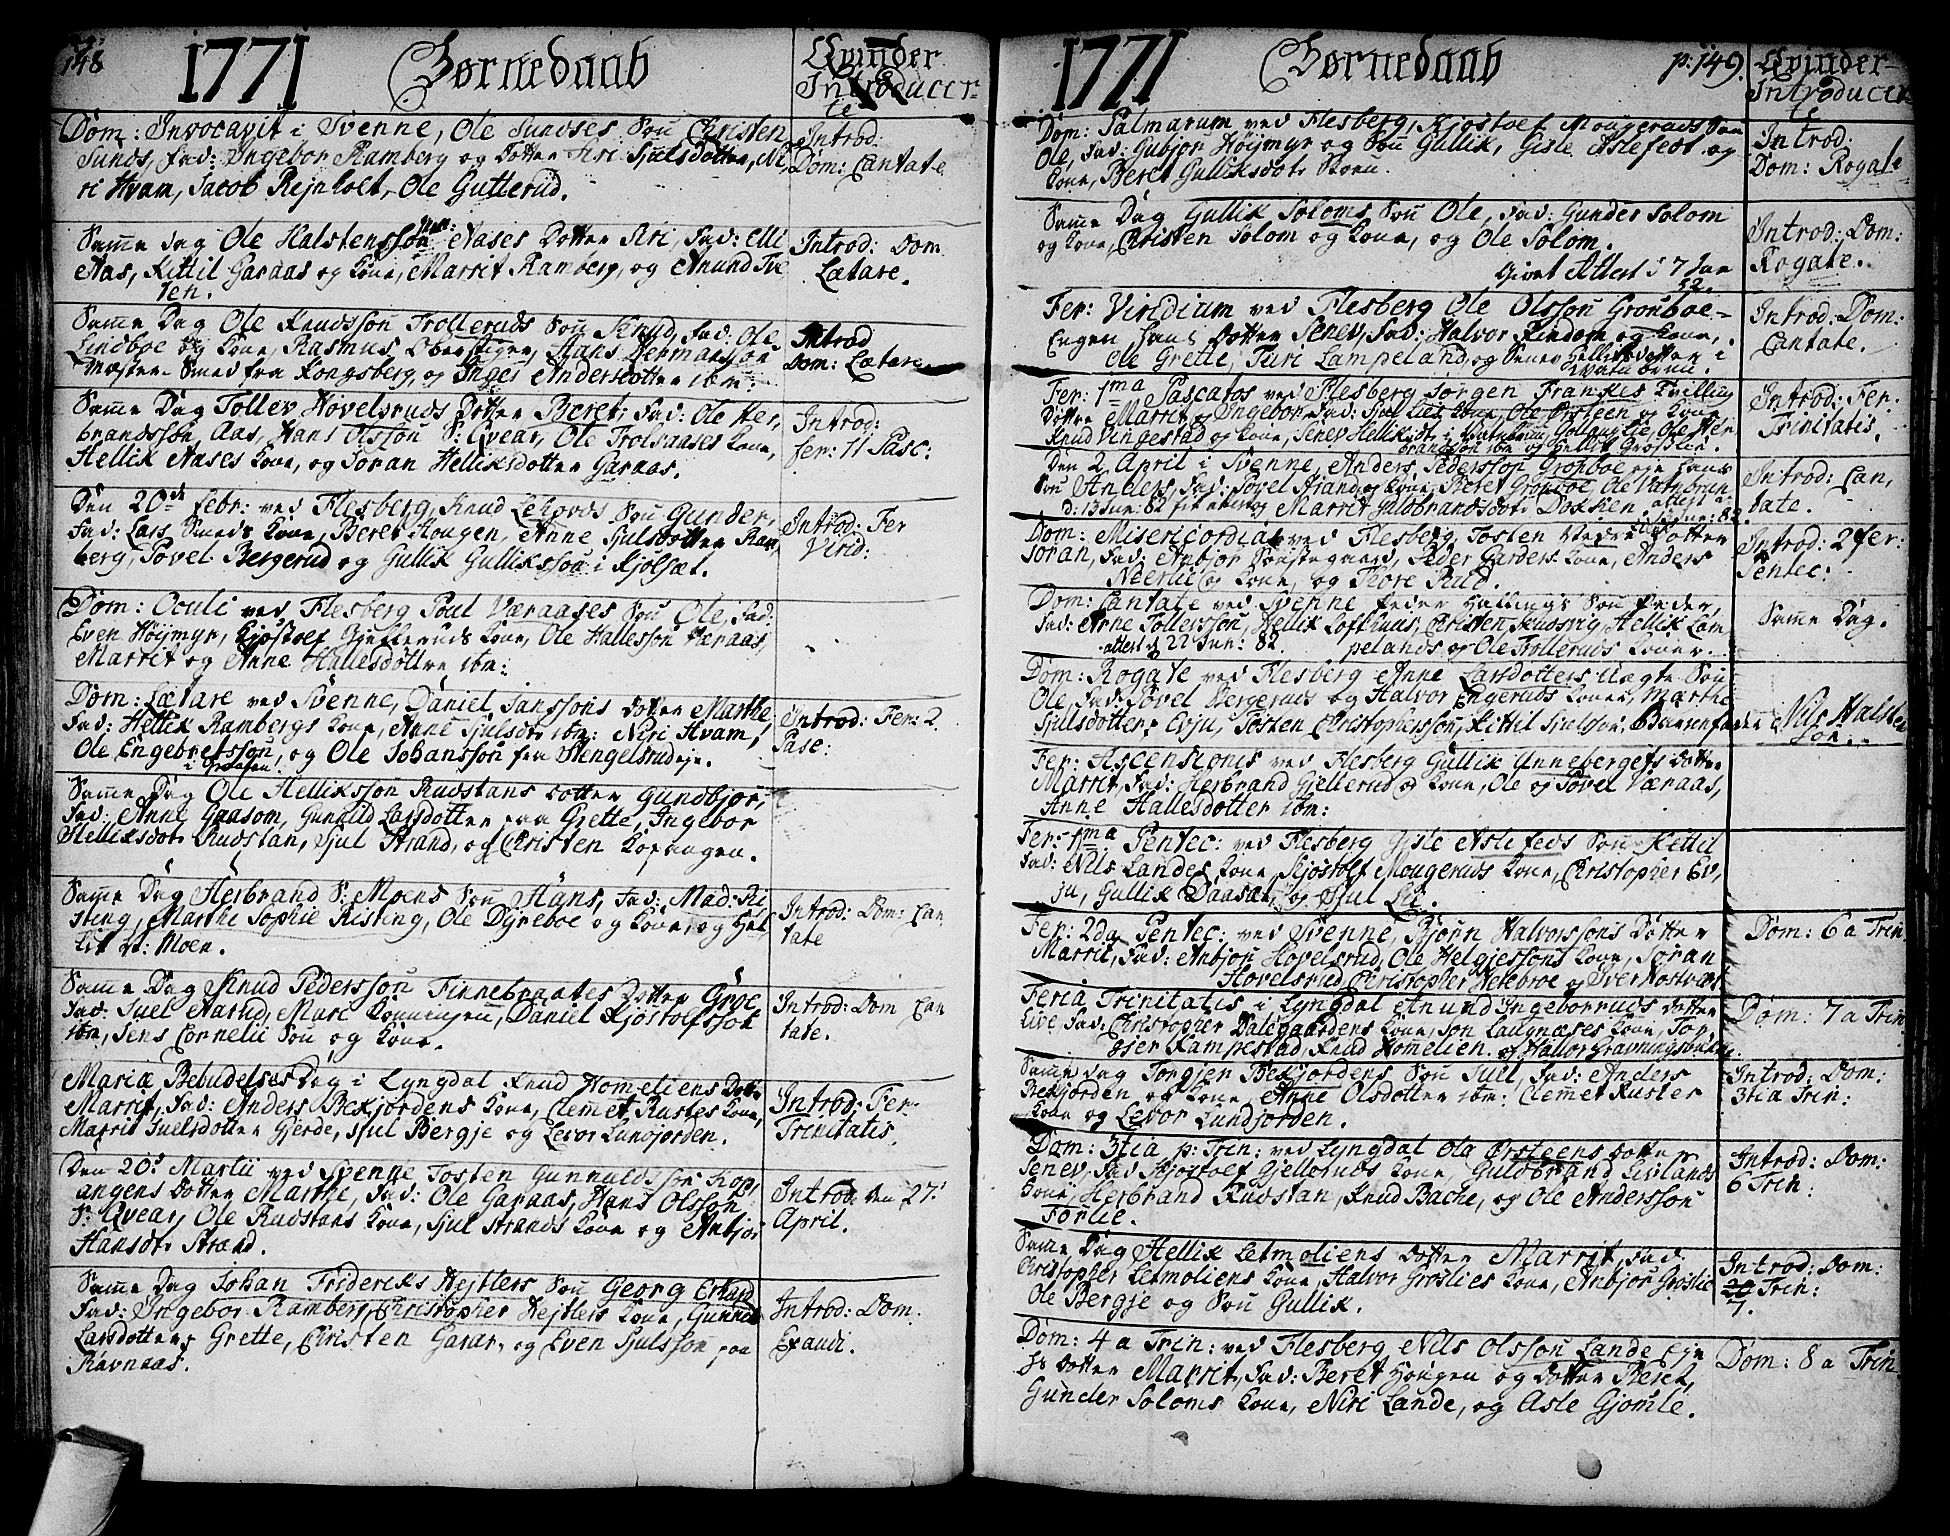 148
1771 Børnedaab
Qvinder
Introducer-
te
Dom: Invocavit i Svenne, Ole Sundses Søn Christen
Sunds, Fad: Ingebor Ramberg og Dotter Siri Sjulsdotter, Ni,
ri Hvam, Jacob Rejnholt, Ole Gutterud.
Introd:
Dom: Cantate
Samme dag Ole Halstensson Aases Dotter Siri, Fad: Elli
Aas, Kittil Garaas og Kone, Marrit Ramberg, og Anund Tve
ten.
Introd: Dom
Lætare.
Samme Dag Ole Knudsson Trolleruds Søn Knud, Fad: Ole
Lindboe og Kone, Rasmus Oberstiger, Hans Hermansson
Mester Smed fra Kongsberg, og Inger Andersdotter ibm:
Introd
Dom: Lætare.
Samme Dag Tollev Hovelsruds Dotter Beret: Fad: Ole Her,
brandssøn, Aas, Hans Olsson S: Qvear, Ole Trolsaases Kone,
Hellik Aases Kone, og Joran Helliksdotter Garaas.
Introd:
fer: 11 Pasc:
Den 20de Febr: ved Flesberg, Knud Søn Gunder,
Fad: Lars Smeds Kone, Beret Hougen, Anne Sjulsdotter Ram,
berg, Tovel Bergerud og Gullik Gulliksson i Kjølsæt.
Introd: Fer
Virid:
Dom: Oculi ved Flesberg Poul Væraases Søn Ole, Fad:
Even Høijmyr, Kjøstolf Gjelleruds Kone, Ole Hallesson Væraas,
Marrit og Anne Hallesdøttre ibm:
Dom: Lætare ved Svenne, Daniel Janssons Dotter Marthe,
Fad: Hellik Rambergs Kone, Anne Sjulsdot: ibm: Niri Hvam,
Ole Engebretsson, og Ole Johansson fra Stengelsrudeje.
Introd: Fer: 2
Pasc:
Samme Dag Ole Helliksson Rudstans Dotter Gundbjor,
Fad: Anne Gaasom, Gunnild Larsdotter paa Grette, Ingebor
Helliksdot: Rudstan, Sjul Strand, og Christen Kopangen.
Samme Dag Herbrand S: Moens Søn Hans, Fad: Mad: Ri
sting, Marthe Sophie Risting, Ole Dyreboe og Kone, og Hel,
lik St: Moen.
Introd: Dom: Can
tate
Samme Dag Knud Pedersson Finnebraates Dotter Groe
Fad: Juel Aasud, Mari Konningen, Daniel Kjøstolfsson
ibm, Jens Cornelii Søn og Kone.
Introd: Dom Can
tate.
Mariæ Bebudelses Dag i Lyngdal Knud Homeliens Dotter
Marrit, Fad: Anders Bekjordens Kone, Clemmet Rustes Kone,
Marrit Juelsdotter Gjerde, Sjul Bergje og Levor Lundjorden.
Introd: Fer
Trinitatis.
Den 20de Martii ved Svenne Tosten Gunnuldsson Kop,
angens Dotter Marthe, Fad: Ole Garaas, Hans Olsson
S: Qvear, Ole Rudstans Kone, Sjul Strands Kone og Anbjor
Hansdt: Strand.
Introd. den 27.
April.
Samme Dag Johan Fridericks Hejtlers Søn Georg Erhard
Fad: Ingebor Ramberg, Christopher Hejtlers Kone, Gunnild
Larsdotter Grette, Christen Garaas, og Even Sjulsson paa
Ravnaas.
Introd: Dom:
Exaudi.
1771 Børnedaab p: 149.
Qvinder
Introducer
te
Dom: Palmarum ved Flesberg, Kjøstolf Mougeruds Søn
Ole, Fad: Gubjor Høijmyr og Søn Gullik, Gisle Aslefedt og
Kone, Beret Gulliksdot: Skoeu.
Introd:
Dom: Rogate
Samme Dag Gullik Soloms Søn Ole, Fad: Gunder Solom
og Kone, Christen Solom og Kone, og Ole Solom.
Givet Attest i 7 Jan
82.
Introd: Dom:
Rogate.
Fer: Viridium ved Flesberg Ole Olsson Gronboe-
Engen hans Dotter Senev, Fad: Halvor Rindom og Kone,
Ole Grette, Turi Lampeland, og Senev Helliksdotter i
Vatnbrun.
Introd: Dom:
Cantate.
Fer: 1ma Pascatos ved Flesberg Jørgen Frankes Tvilling
Døttre Marrit og Ingebor, Fad: Sjul Lies Kone, Ole Ørsteen og Kone,
Knud Vingestad og Kone, Senev Hellikdt: i Vatnbrun, Ole Her
brandsson ibm og Hellik Groslie.
Introd: Fer.
Trinitatis.
Den 2. April i Svenne, Anders Pedersson Gronboe eje hans
Søn Anders, Fad: Tovel Strand, og Kone, Beret Gronboe, Ole Vatnbrun
og Marrit Huldbrandsdot: Dokken.
Introd: Can,
tate.
Dom: Misericordiæ ved Flesberg, Tosten Dotter
Joran, Fad: Anbjor Peder Garders: Kone, Anders
Neerlie og Kone, og Thore Ruud.
Introd: 2 fer:
Pentec:
Dom: Cantate ved Svenne Peder Hallings Søn Peder,
Fad: Arne Tollersson, Hellik Lofthuus, Christen Hellik Lam,
attest d 22 Jun: 82. pelands og Ole Trolleruds Koner.
Samme Dag.
Dom: Rogate ved Flesberg Anne Larsdotters Uægte Søn
Ole, Fad: Tovel Bergerud og Halvor Engeruds Koner, Marthe
Sjulsdotter Evju, Tosten Christophersson, Kittil Sjulsson, Barnefader Nils Halsten
son.
Fer: Ascensiones ved Flesberg Gullik Unnebergets Dotter
Marrit, Fad: Herbrand Gjellerud og Kone, Ole og Tovel Væraas,
Anne Hallesdotter ibm:
Fer: 1ma Pentec: ved Flesberg Gisle Aslefeds Søn Kettil
Fad: Nils Landes Kone, Kjøstolf Mougeruds Kone, Christopher Ev,
ju, Gullik Daasæt, og Sjul Lie.
Fer: 2da Pentec: ved Svenne, Bjørn Halvorssons Dotter
Marrit, Fad: Anbjor Hovelsrud, Ole Helgjessons Kone, Joran
Hovelsrud, Christopher Heleboe og Iver
Dom: 6 a Trin
Feria Trinitatis i Lyngdal Anund Ingeborruds Dotter
Live, Fad: Christopher Dalsgaardens Kone, Jon Langnæses Kone, Tor
gjer Kampestad, Knud Homelien. og Halvor Gravningsbraten.
Dom: 7 a Trin
Samme Dag Torgjer Bekjordens Søn Juel, Fad: Anders
Bekjorden og Kone, Anne Olsdotter ibm: Clemet Ruster
Kone og Levor Lundjorden.
Introd: Dom:
3tia Trin:
Dom: 3tia p: Trin: ved Lyngdal Ola Ørsteens Dotter
Senev, Fad: Kjøstolf Gjelleruds Kone, Guldbrand Livlands
Kone, Herbrand Rudstan, Knud Bache, og Ole Andersson
Forlie.
Introd: Dom:
6 Trin:
Samme Dag Hellik Letmoliens Dotter Marrit, Fad:
Christopher Letmoliens Kone, Halvor Groslies Kone, Anbjor Groslie
Ole Bergje og Søn Gullik.
Introd: Dom:
Trin:
7.
Dom: 4 a Trin: ved Flesberg, Nils Olsson Lande Eje
hs Dotter Marrit, Fad: Beret Hougen og Dotter Beret,
Gunder Soloms Kone, Niri Lande, og Asle Gjomle.
Dom: 8 a Trin